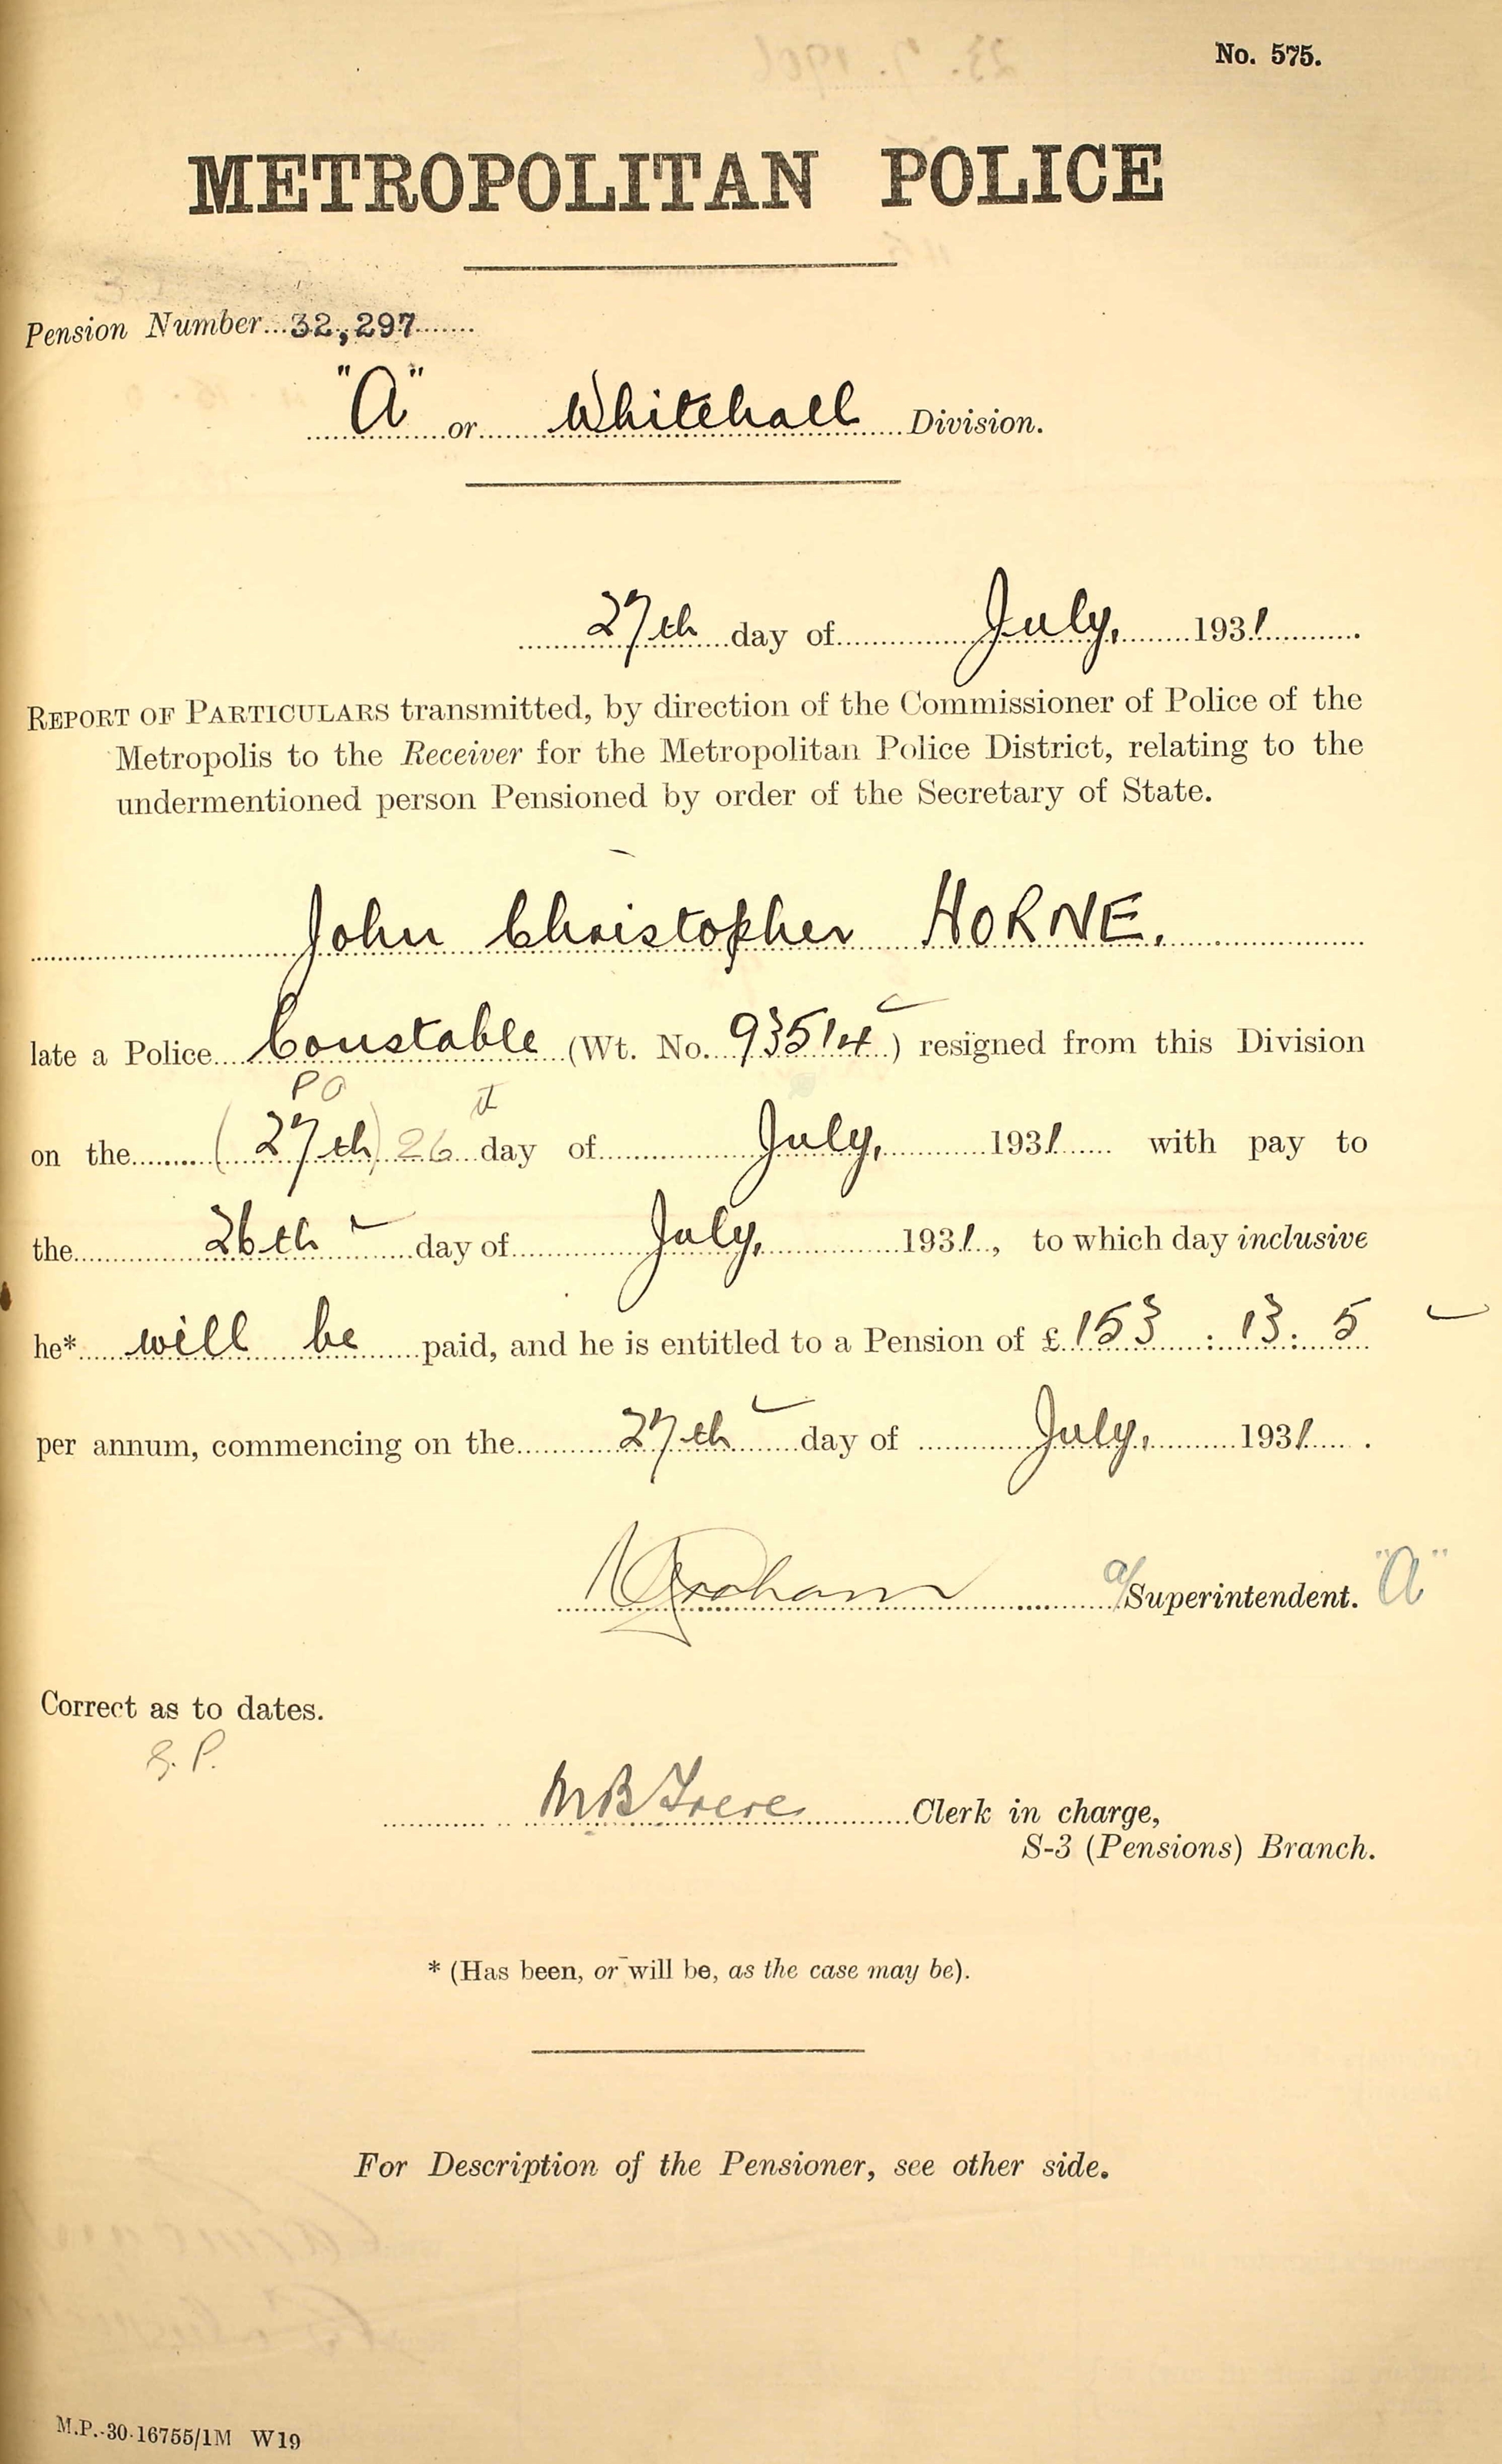 No. 575.
METROPOLITAN POLICE
Pension Number...32,297
"A" or Whitehall Division.
27th day of July, 1931.
REPORT OF PARTICULARS transmitted, by direction of the Commissioner of Police of the
Metropolis to the Receiver for the Metropolitan Police District, relating to the
undermentioned person Pensioned by order of the Secretary of State.
John Christopher HORNE.
late a Police Constable (Wt. No. 93514) resigned from this Division
PO
on the (27th) 26 day of July, 1931 with pay to
the 26th day of July, 1931, to which day inclusive
he* will be paid, and he is entitled to a Pension of £153 : 13 : 5
per annum, commencing on the 27th day of July, 1931.
Graham a/Superintendent. "A"
Correct as to dates.
Clerk in charge,
S-3 (Pensions) Branch.
* (Has been, or will be, as the case may be).
For Description of the Pensioner, see other side.
M.P.-30-16755/1M W19